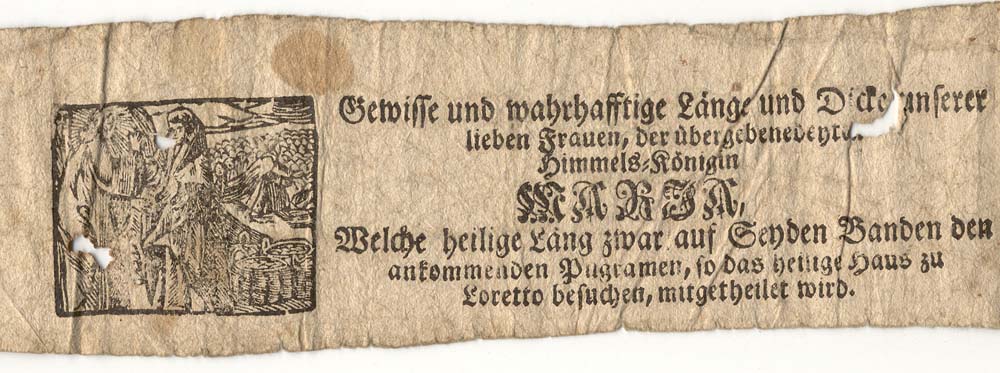 Gewisse und wahrhafftige Länge und Dicke unserer
lieben Frauen, der übergebenedeyte
Himmels-Königin
MARIA,
Welche heilige Läng zwar auf Seyden Banden den
ankommenden Pilgramen, so das heilige Haus zu
Loretto besuchen, mitgetheilet wird.